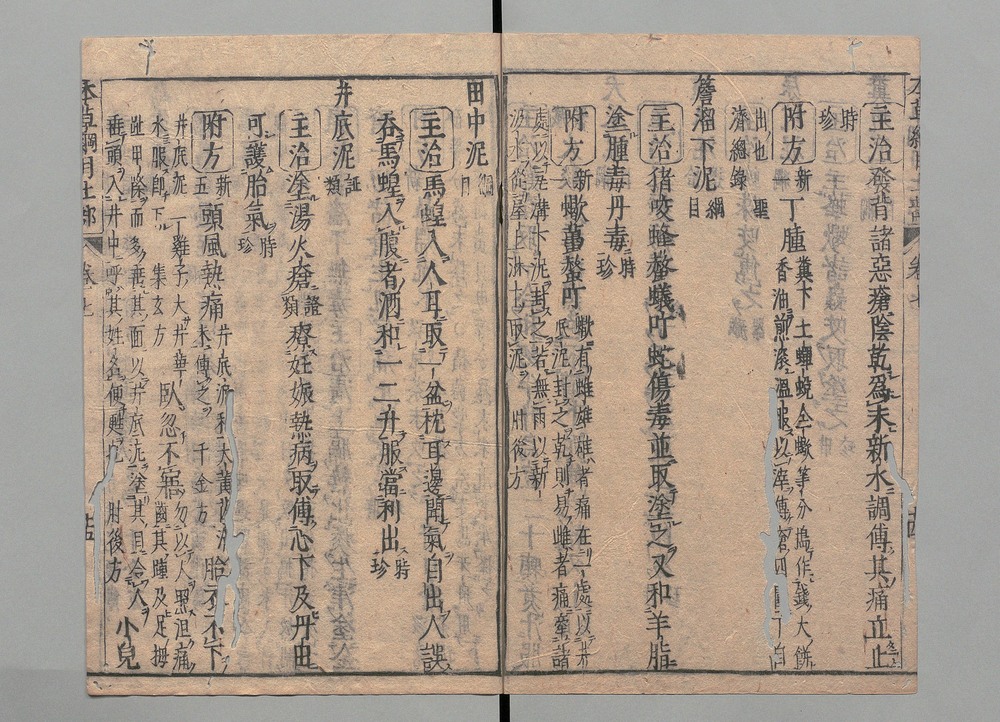 主治發背諸惡瘡陰乾爲末新水調傅其痛立止
時珍
附方新丁腫糞下土蟬蛻全蝎等分搗作錢大餅
香油煎滾温服以滓傅瘡四
出也 聖
濟總錄
簷溜下泥綱目
主治猪咬蜂螫蟻叮蛇傷毒並取塗之又和羊脂
塗腫毒丹毒時珍
附方新蠍蠆螫叮蠍有雌雄雄者痛在一處以井
底泥封之乾則易雌者痛牽諸
處以瓦溝下泥封之若無雨以新
汲水從屋上淋下取泥 肘後方
田中泥綱目
主治馬蝗入人耳取一盆枕耳邊聞氣自出人誤
吞馬蝗入腹者酒和一二升服當利出時珍
井底泥證類
主治塗湯火瘡證類療妊娠熱病取傅心下及丹田
可護胎氣時珍
附方新五頭風熱痛井底泥和大黃
末傅之 千金方
胎衣不下
井底泥一雞子大井華
水服卽下 集玄方
臥忽不寤勿以火照但痛
齧其踵及足拇
趾甲際而多唾其面以井底泥塗其目令人
垂頭入井中呼其姓名便甦也 肘後方
小兒
本草綱目土部 卷七